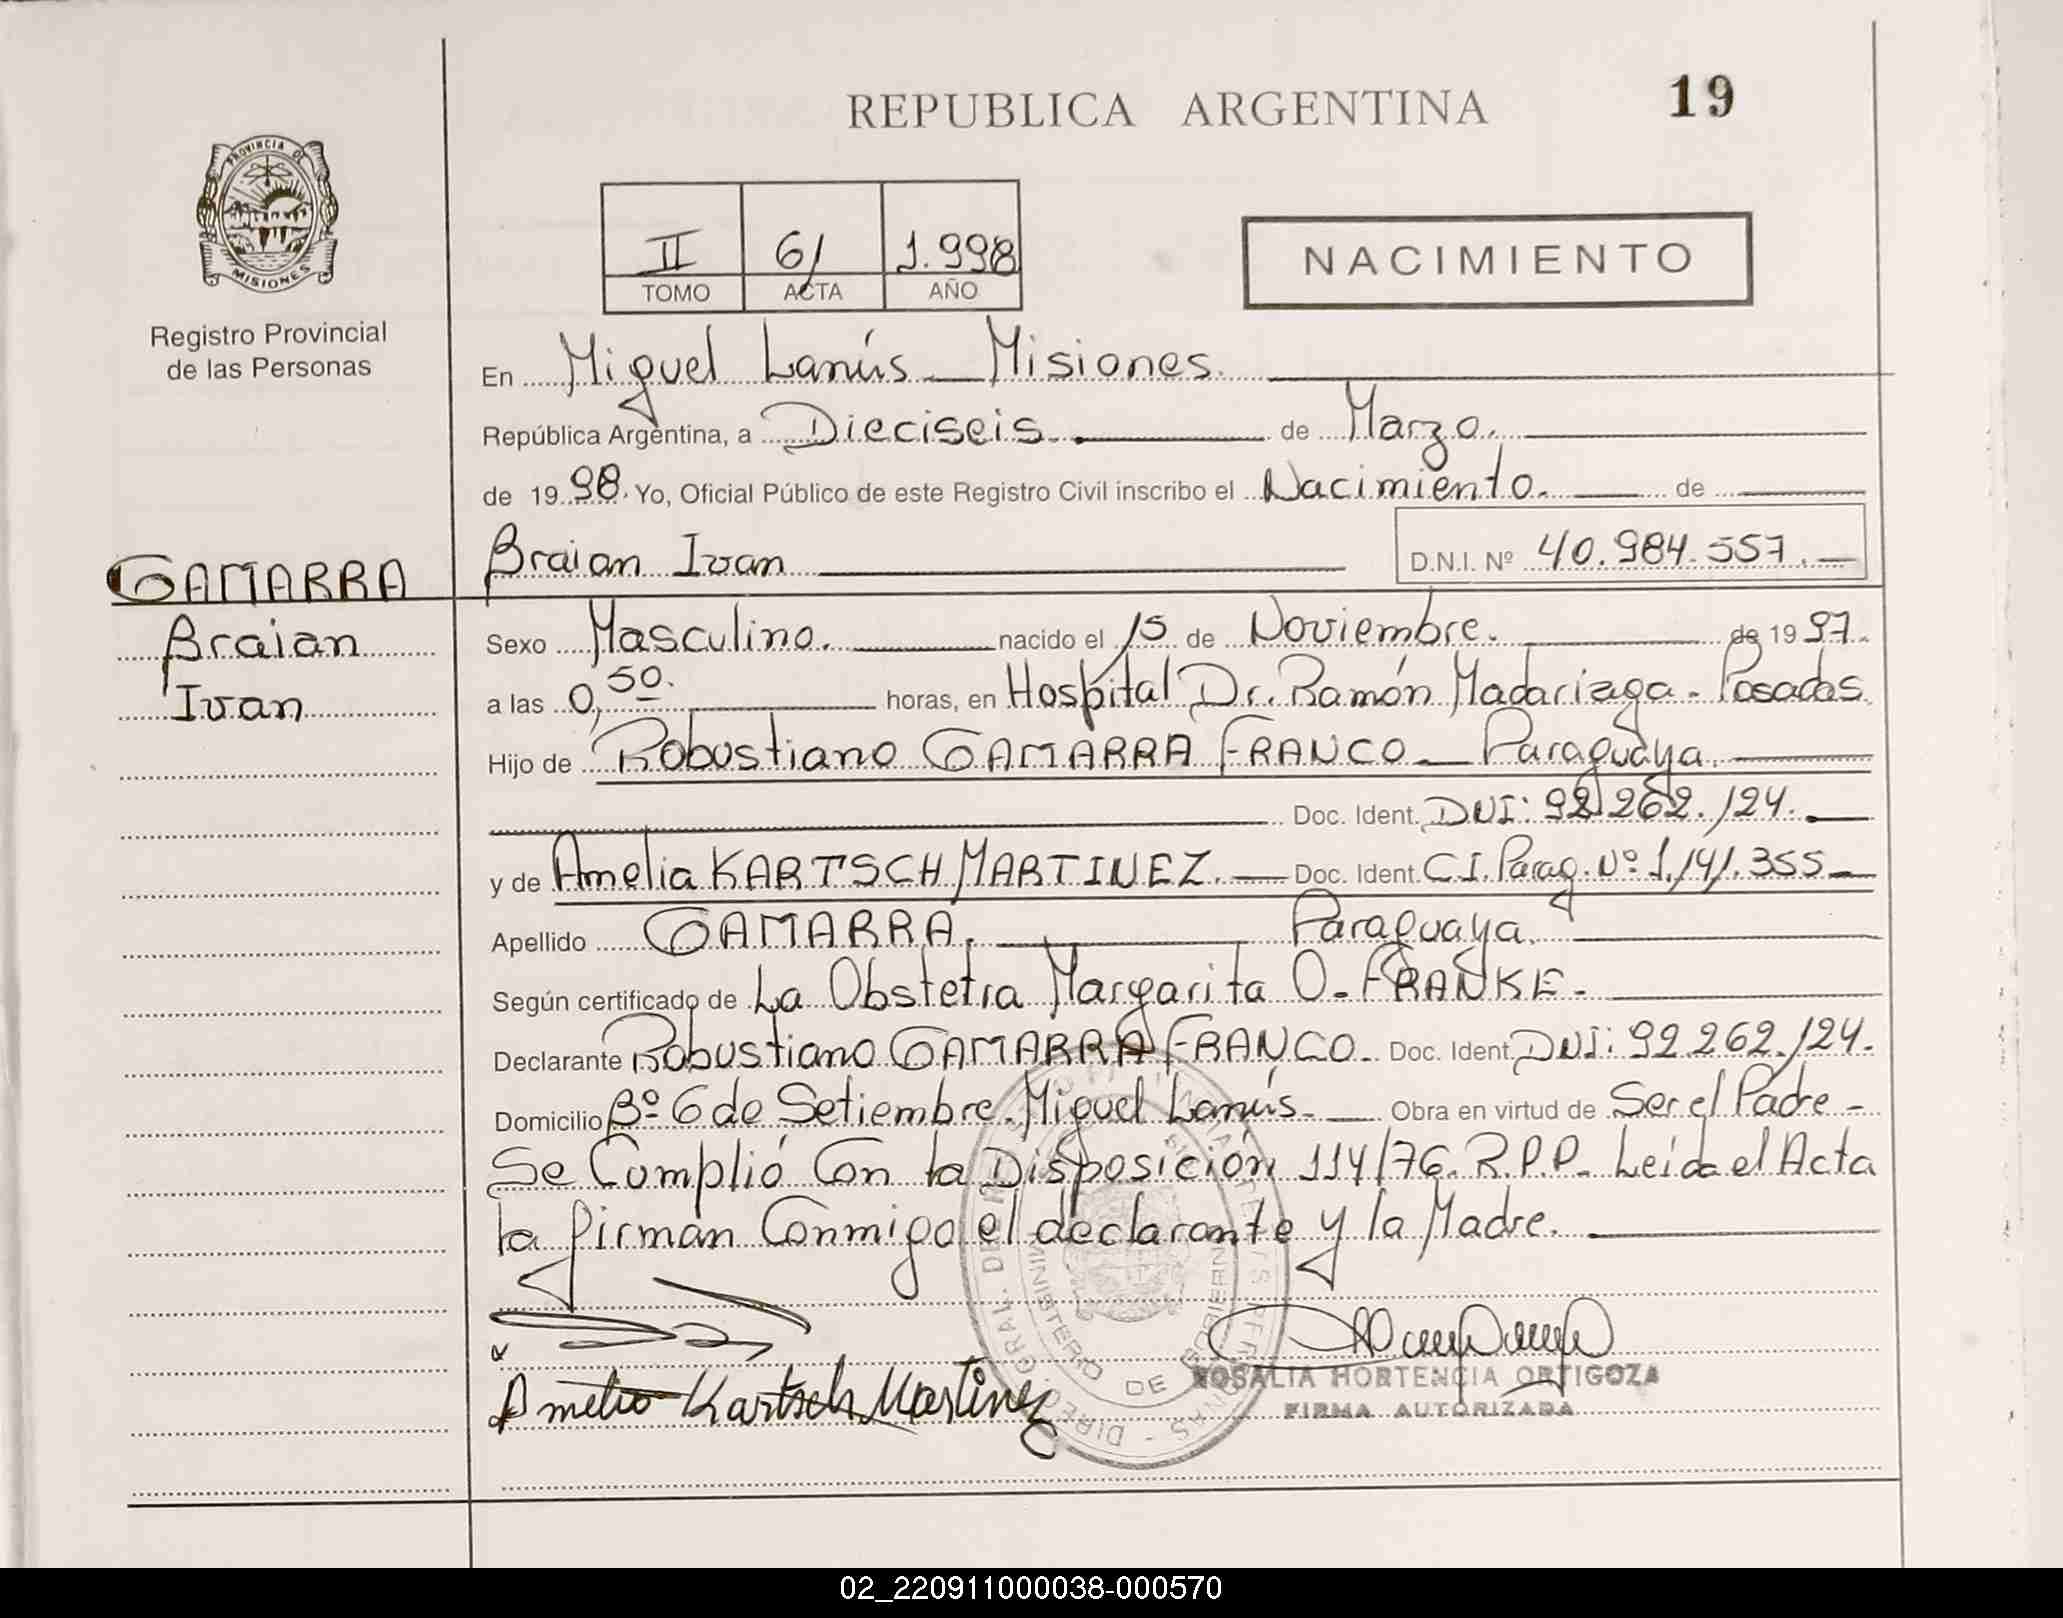 REPUBLICA ARGENTINA
19
PROVINCIA DE
MISIONES
Registro Provincial
de las Personas
II 61 1.998
TOMO ACTA AÑO
NACIMIENTO
En Miguel Lanús - Misiones.
República Argentina, a Dieciseis. de Marzo.
de 1998. Yo, Oficial Público de este Registro Civil inscribo el Nacimiento. de
GAMARRA
Braian
Ivan
Braian Ivan D.N.I. Nº 40.984.557.
Sexo Masculino. nacido el 15 de Noviembre. de 1997.
a las 0,50. horas, en Hospital Dr. Ramón Madariaga - Posadas.
Hijo de Robustiano GAMARRA FRANCO - Paraguaya.
Doc. Ident. DNI: 92.262.124.
y de Amelia KARTSCH MARTINEZ. Doc. Ident. C.I. Parag. Nº 1.141.355
Apellido GAMARRA. Paraguaya.
Según certificado de La Obstetra Margarita O. FRANKE -
Declarante Robustiano GAMARRA FRANCO. Doc. Ident. DNI: 92.262.124.
Domicilio Bº 6 de Setiembre. Miguel Lanús - Obra en virtud de Ser el Padre -
Se Cumplió Con la Disposición 114/76. R.P.P. Leída el Acta
la firman Conmigo el declarante y la Madre.
Amelia Kartsch Martinez
ROSALIA HORTENCIA ORTIGOZA
FIRMA AUTORIZADA
MINISTERIO DE GOBIERNO
02_220911000038-000570